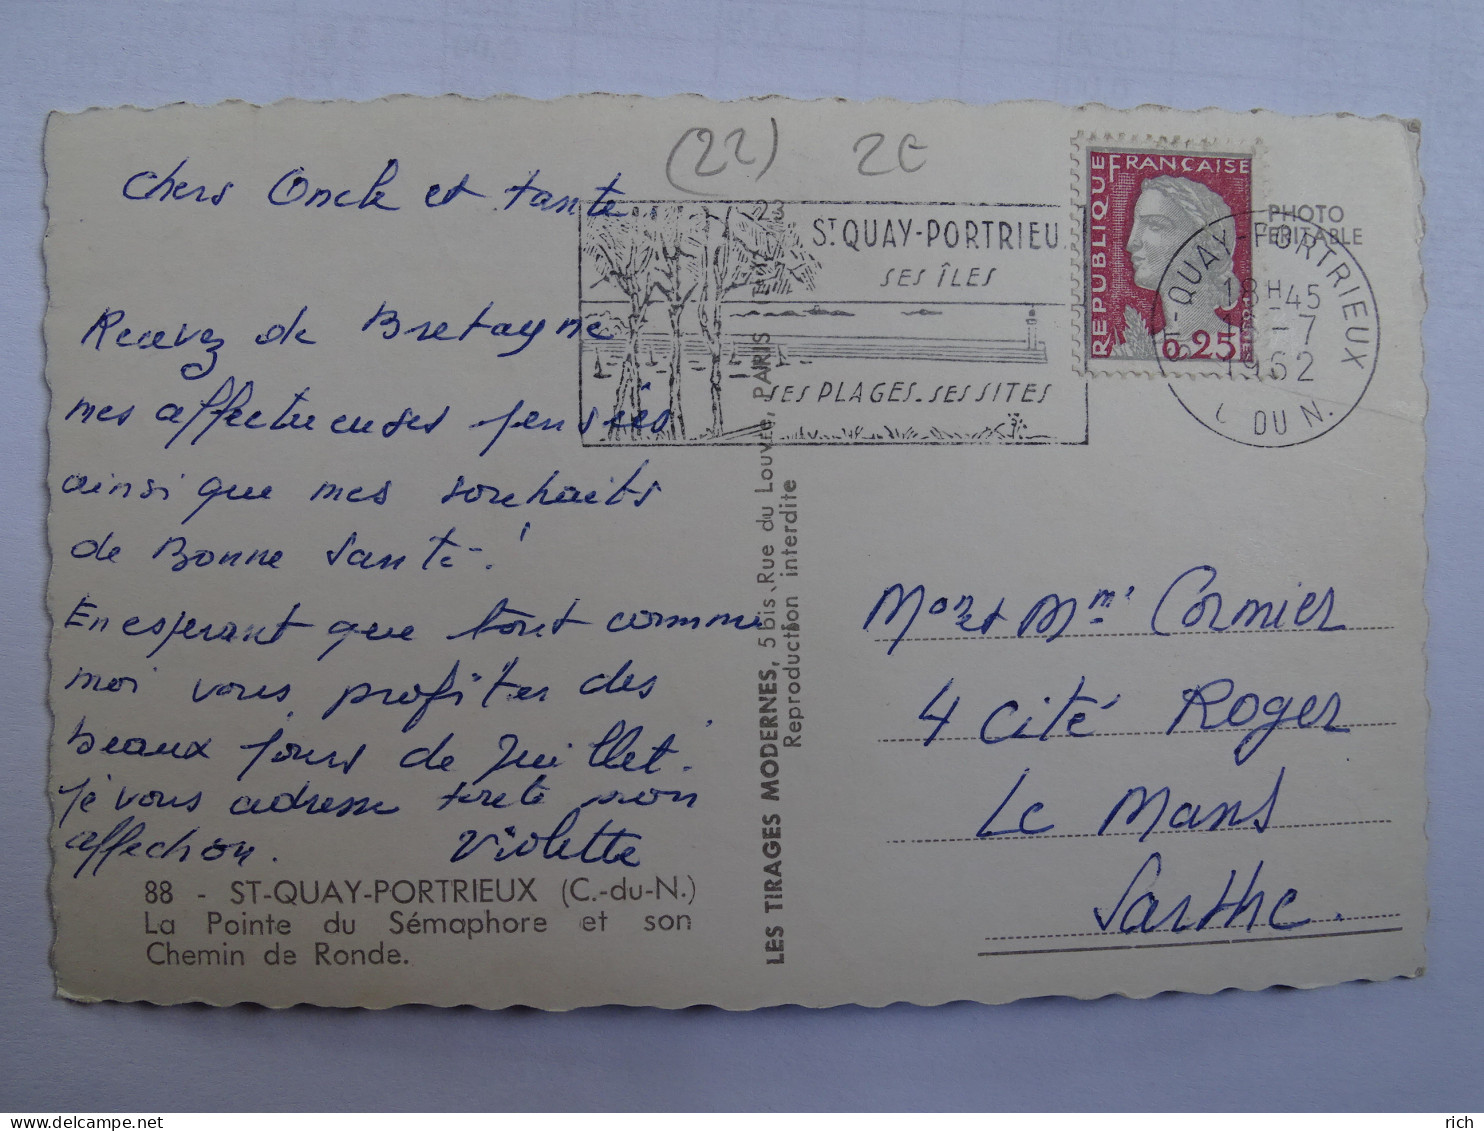 (22) 2€
Chers Oncle et tante
Recevez de Bretagne
mes affectueuses pensées
ainsi que mes souhaits
de Bonne Santé !
En esperant que tout comme
moi vous profitez des
beaux jours de Juillet.
Je vous adresse toute mon
affection. Violette
88 - ST-QUAY-PORTRIEUX (C.-du-N.)
La Pointe du Sémaphore et son
Chemin de Ronde.
LES TIRAGES MODERNES, 5 bis, Rue du Louvre, PARIS
Reproduction interdite
ST QUAY-PORTRIEUX
SES ÎLES
SES PLAGES. SES SITES
RÉPUBLIQUE
FRANÇAISE
0,25
PHOTO
VERITABLE
ST-QUAY-PORTRIEUX
18H45
-7
1962
C. DU N.
Mon et Mme Cormier
4 Cité Roger
Le Mans
Sarthe.
rich